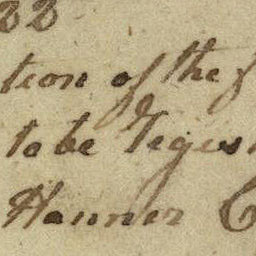 22
tion of the
to be Regis
Hanner C